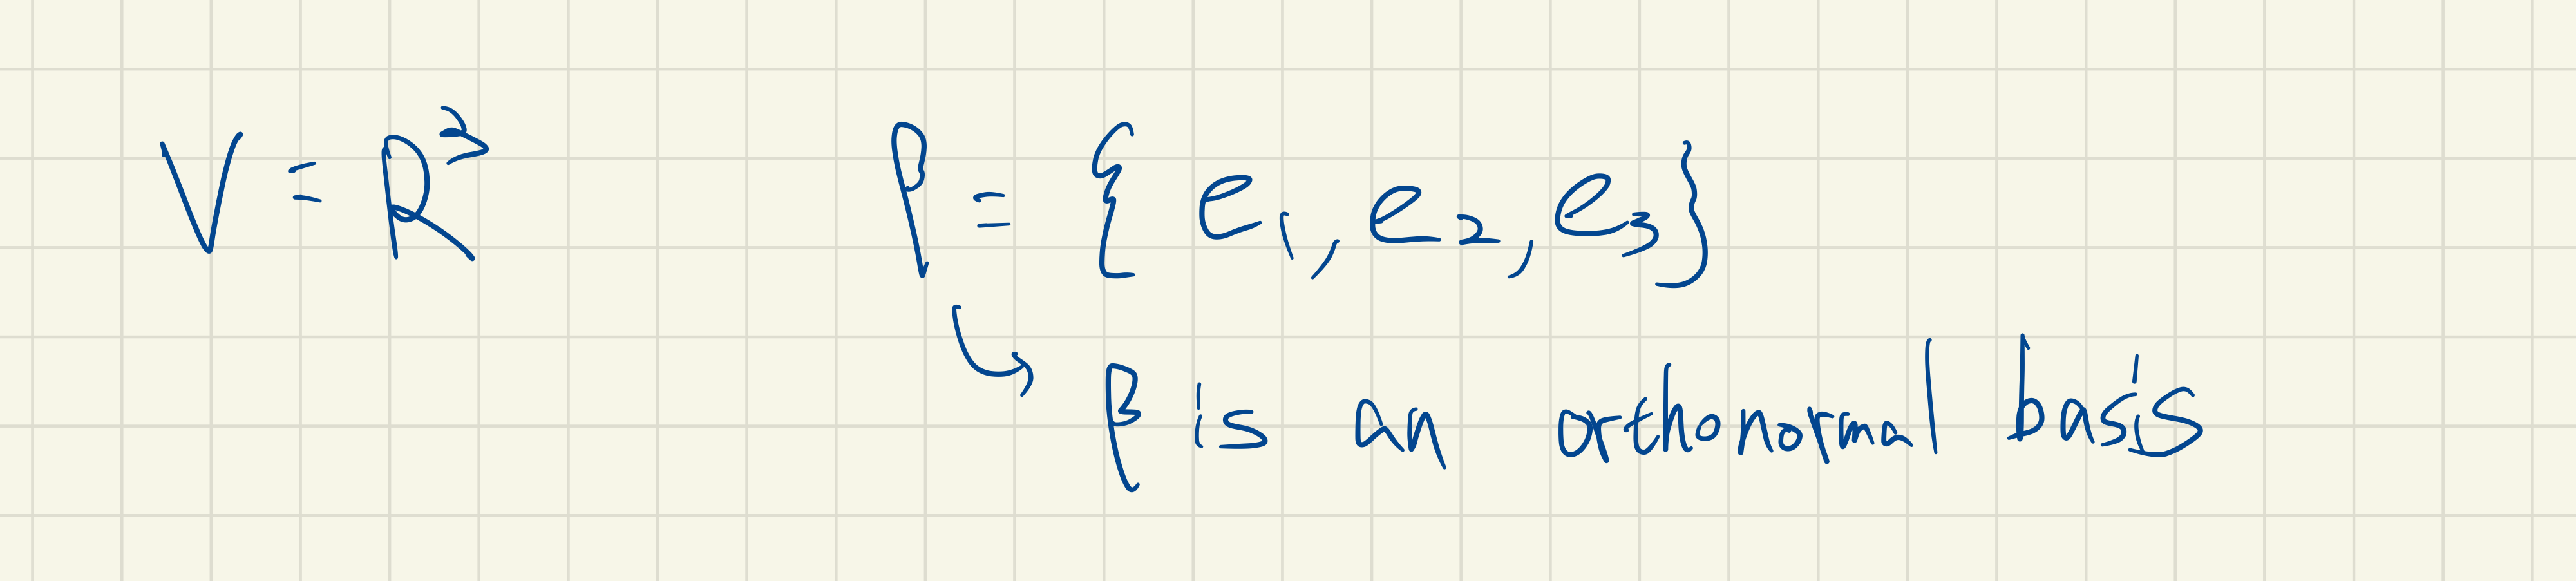 V = R³ β = { e₁, e₂, e₃ }
↳ β is an orthonormal basis